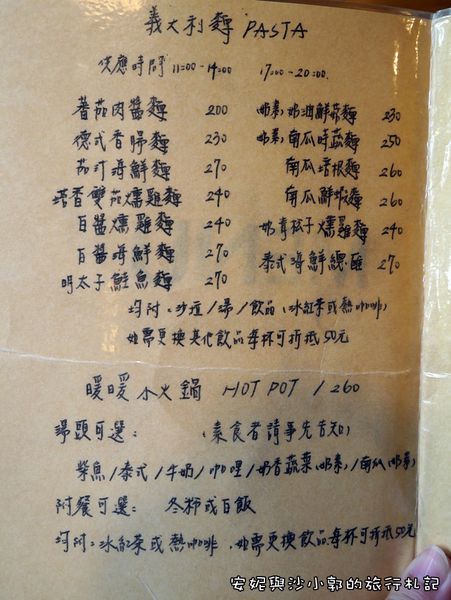 義大利麵 PASTA
供應時間 11:00-14:00 17:00-20:00
蕃茄肉醬麵 200
德式香腸麵 230
茄汁海鮮麵 270
塔香雙茄燻雞麵 240
白醬燻雞麵 240
白醬海鮮麵 270
明太子鮭魚麵 270
(奶素)奶油鮮菇麵 230
(奶素)南瓜時蔬麵 250
南瓜培根麵 260
南瓜鮮蝦麵 260
奶青松子燻雞麵 240
泰式海鮮總匯 270
均附:沙拉/湯/飲品(冰紅茶或熱咖啡)
如需更換其他飲品每杯可折抵50元
暖暖小火鍋 HOT POT / 260
湯頭可選: (素食者請事先告知)
柴魚/泰式/牛奶/咖哩/奶香蔬菜(奶素)/南瓜(奶素)
附餐可選: 冬粉或白飯
均附:冰紅茶或熱咖啡,如需更換飲品每杯可折抵50元
安妮與沙小郭的旅行札記